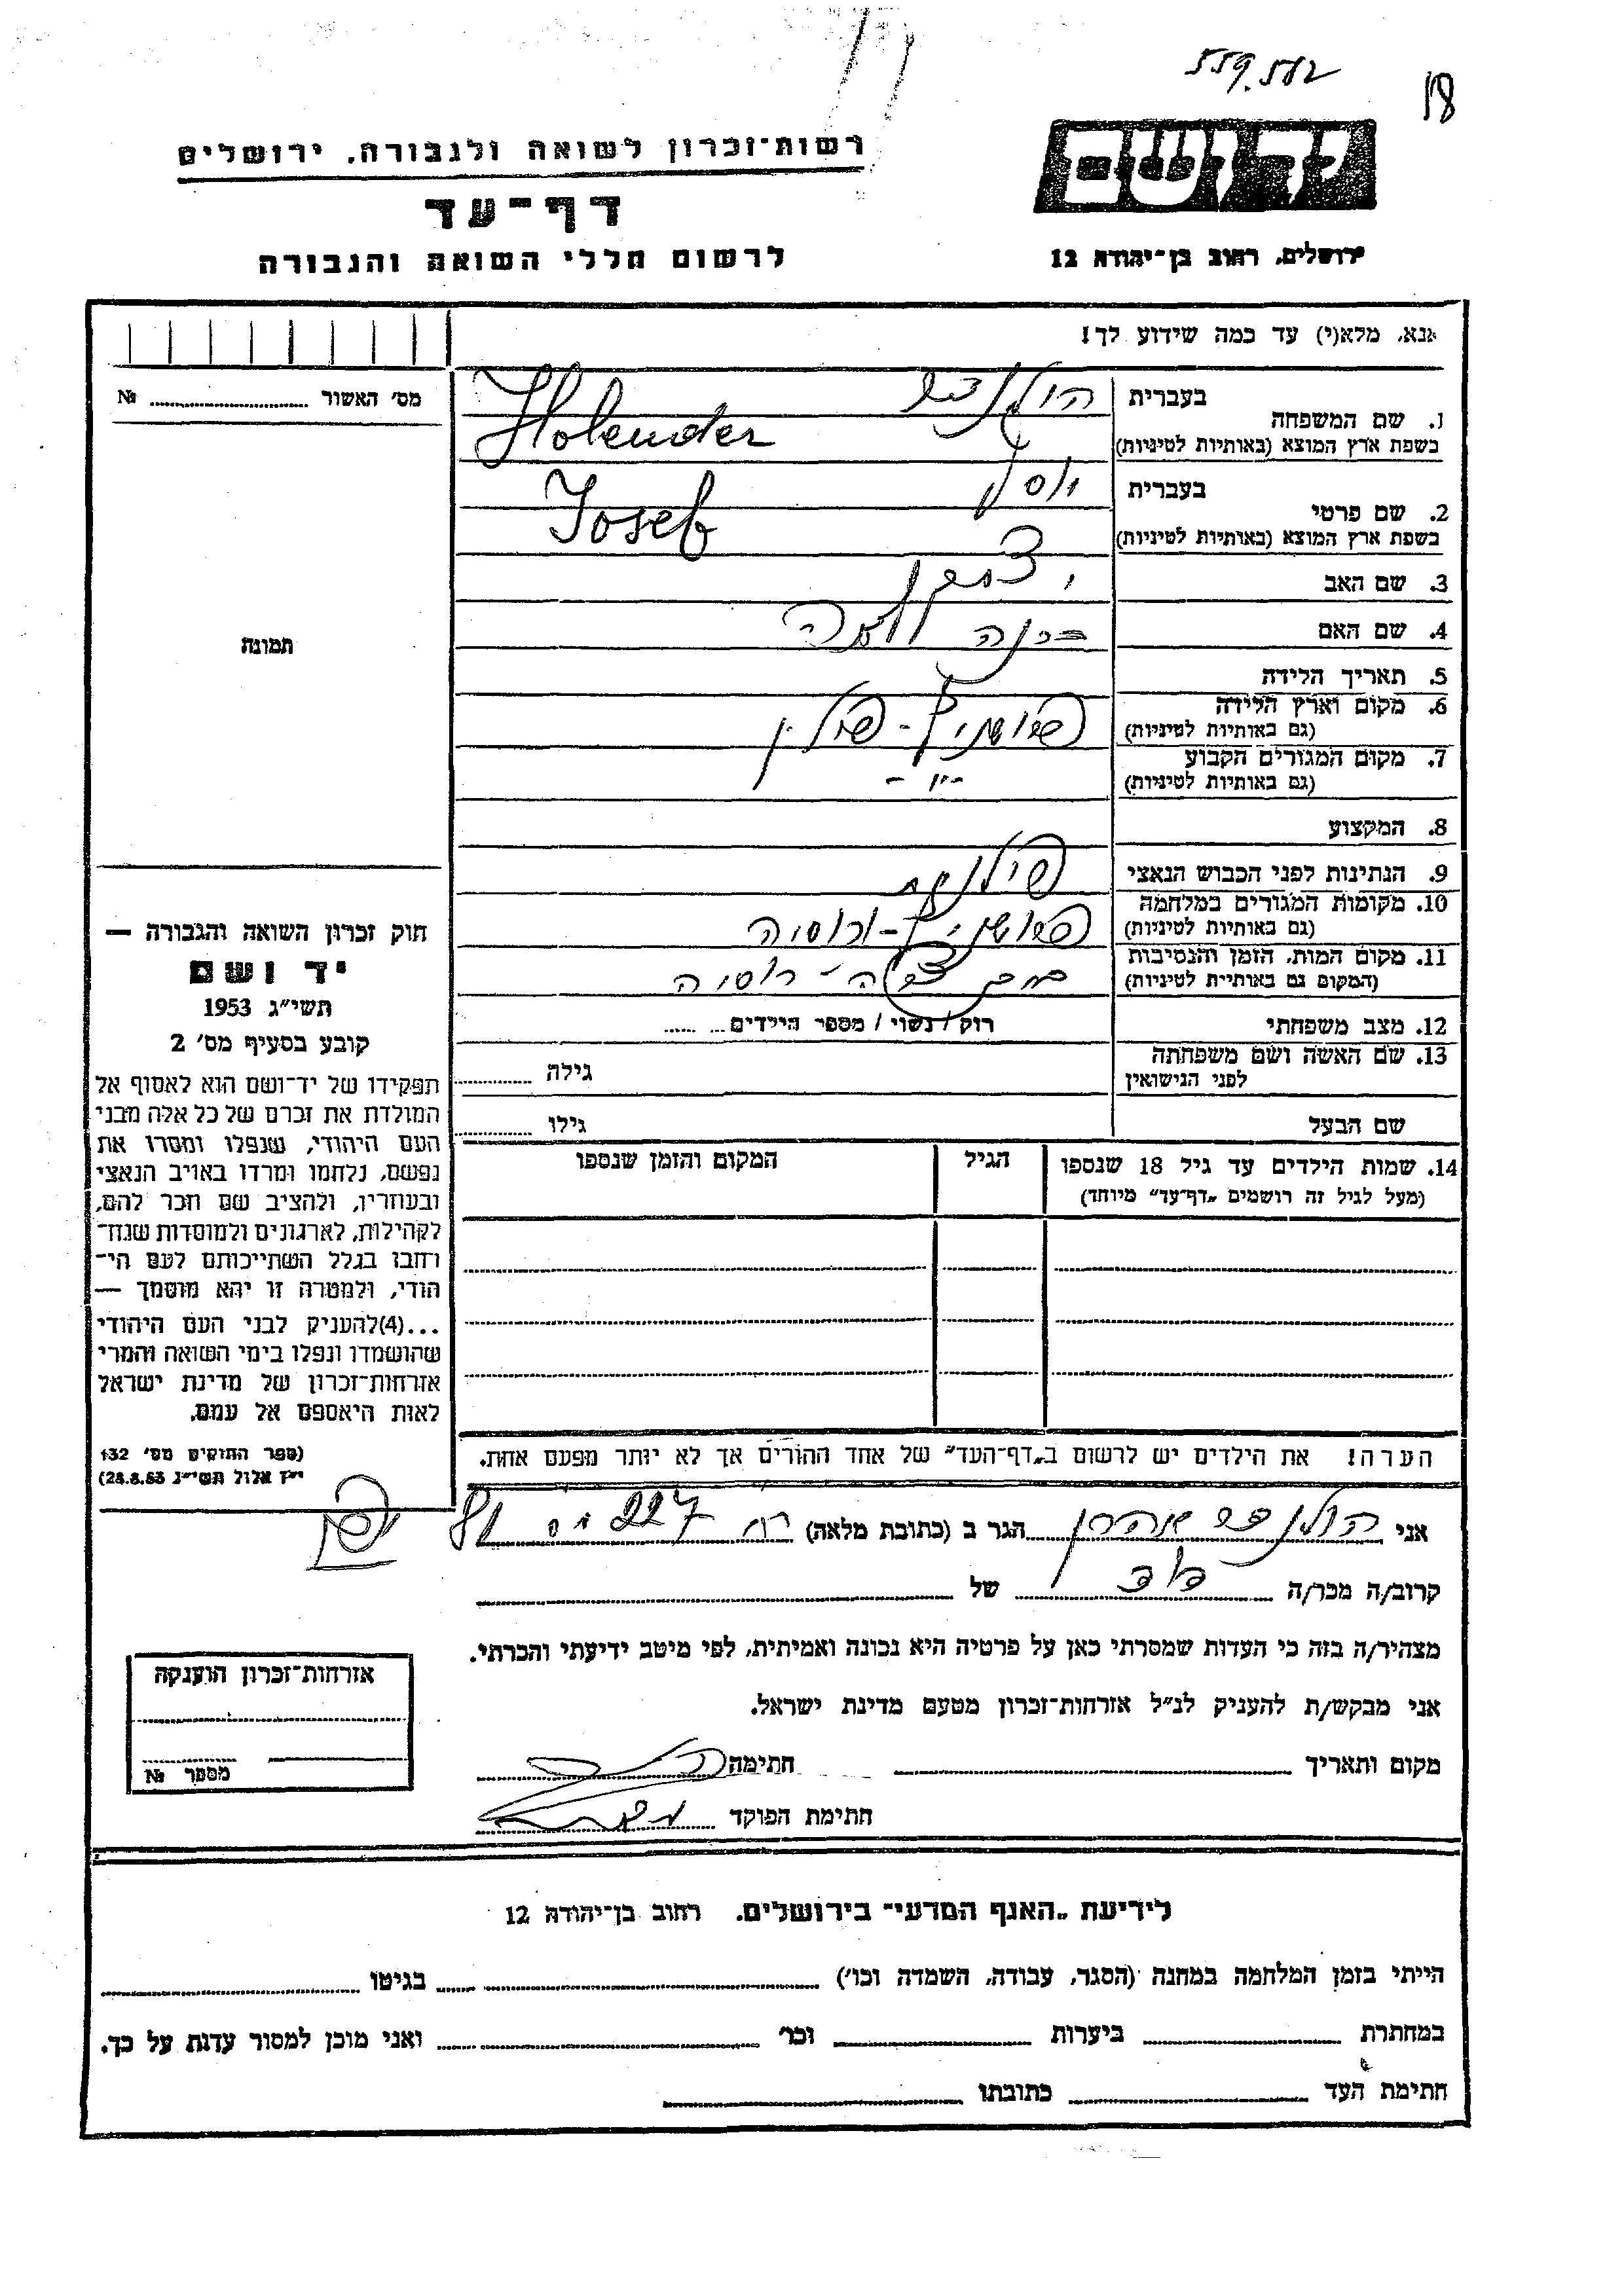 559.582
18
יד ושם
רשות־זכרון לשואה ולגבורה. ירושלים
דף־עד
לרשום חללי השואה והגבורה
ירושלים. רחוב בן־יהודה 12
אנא, מלא(י) עד כמה שידוע לך!
מס' האשור № ........
תמונה
1. שם המשפחה
בעברית הולנדר
בשפת ארץ המוצא (באותיות לטיניות) Holender
2. שם פרטי
בעברית יוסף
בשפת ארץ המוצא (באותיות לטיניות) Josef
3. שם האב יצחק
4. שם האם
5. תאריך הלידה
6. מקום וארץ הלידה - פולין
(גם באותיות לטיניות)
7. מקום המגורים הקבוע -"-
(גם באותיות לטיניות)
8. המקצוע
9. הנתינות לפני הכבוש הנאצי פולנית
10. מקומות המגורים במלחמה - ורוסיה
(גם באותיות לטיניות)
11. מקום המות, הזמן והנסיבות - רוסיה
(המקום גם באותיות לטיניות)
12. מצב משפחתי רוק / נשוי / מספר הילדים ........
13. שם האשה ושם משפחתה גילה ........
לפני הנישואין
שם הבעל גילו ........
14. שמות הילדים עד גיל 18 שנספו הגיל המקום והזמן שנספו
(מעל לגיל זה רושמים „דף־עד" מיוחד)
הערה! את הילדים יש לרשום ב„דף־העד" של אחד ההורים אך לא יותר מפעם אחת.
חוק זכרון השואה והגבורה —
יד ושם
תשי"ג 1953
קובע בסעיף מס' 2
תפקידו של יד־ושם הוא לאסוף אל
המולדת את זכרם של כל אלה מבני
העם היהודי, שנפלו ומסרו את
נפשם, נלחמו ומרדו באויב הנאצי
ובעוזריו, ולהציב שם וזכר להם,
לקהילות, לארגונים ולמוסדות שנח־
רבו בגלל השתייכותם לעם הי־
הודי, ולמטרה זו יהא מוסמך —
...(4)להעניק לבני העם היהודי
שהושמדו ונפלו בימי השואה והמרי
אזרחות־זכרון של מדינת ישראל
לאות היאספם אל עמם.
(ספר החוקים מס' 132
י"ז אלול תשי"ג 28.8.53)
אני הולנדר אהרן הגר ב (כתובת מלאה) 227
קרוב/ה מכר/ה דוד של ........
מצהיר/ה בזה כי העדות שמסרתי כאן על פרטיה היא נכונה ואמיתית, לפי מיטב ידיעתי והכרתי.
אני מבקש/ת להעניק לנ"ל אזרחות־זכרון מטעם מדינת ישראל.
מקום ותאריך ........ חתימה
חתימת הפוקד
אזרחות־זכרון הוענקה
מספר №
לידיעת „האגף המדעי" בירושלים. רחוב בן־יהודה 12
הייתי בזמן המלחמה במחנה (הסגר, עבודה, השמדה וכו') ........ בגיטו ........
במחתרת ........ ביערות ........ וכו' ........ ואני מוכן למסור עדות על כך.
חתימת העד ........ כתובתו ........